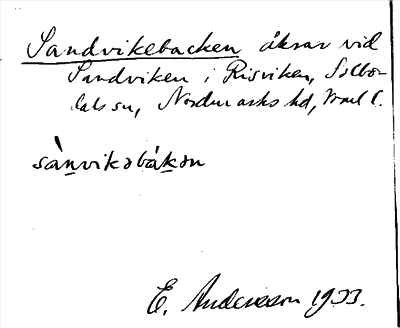 Sandvikebacken åkrar vid
Sandviken i Risviken, Silbo-
dals sn, Nordmarks hd, Vrml l.
sànvikəbákən
E. Andersson 1933.